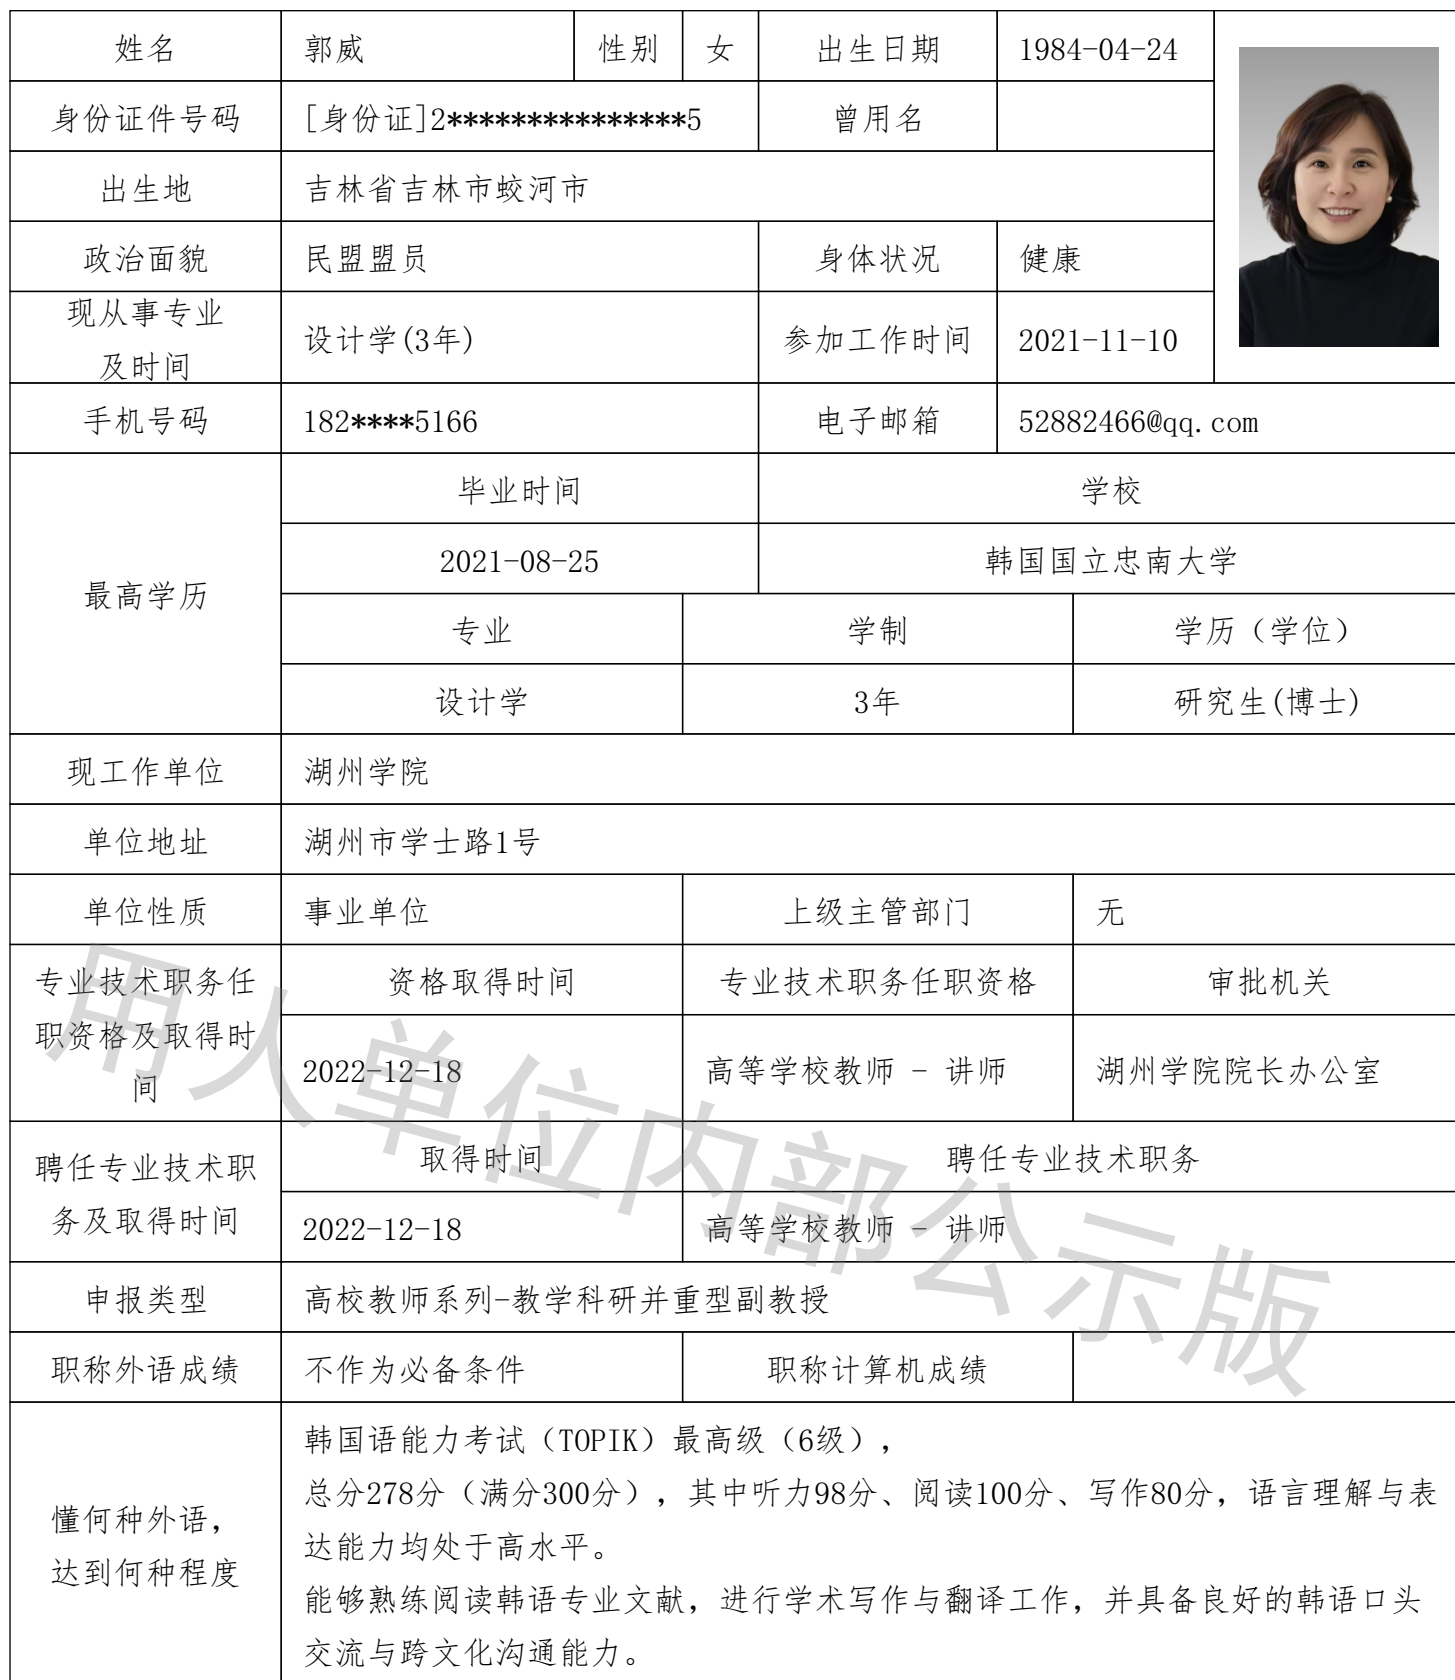 姓名 郭威 性别 女 出生日期 1984-04-24
身份证件号码 [身份证]2***************5 曾用名
出生地 吉林省吉林市蛟河市
政治面貌 民盟盟员 身体状况 健康
现从事专业
及时间 设计学(3年) 参加工作时间 2021-11-10
手机号码 182****5166 电子邮箱 52882466@qq.com
最高学历
毕业时间 学校
2021-08-25 韩国国立忠南大学
专业 学制 学历（学位）
设计学 3年 研究生(博士)
现工作单位 湖州学院
单位地址 湖州市学士路1号
单位性质 事业单位 上级主管部门 无
专业技术职务任
职资格及取得时
间
资格取得时间 专业技术职务任职资格 审批机关
2022-12-18 高等学校教师 - 讲师 湖州学院院长办公室
聘任专业技术职
务及取得时间
取得时间 聘任专业技术职务
2022-12-18 高等学校教师 - 讲师
申报类型 高校教师系列-教学科研并重型副教授
职称外语成绩 不作为必备条件 职称计算机成绩
懂何种外语，
达到何种程度
韩国语能力考试（TOPIK）最高级（6级），
总分278分（满分300分），其中听力98分、阅读100分、写作80分，语言理解与表
达能力均处于高水平。
能够熟练阅读韩语专业文献，进行学术写作与翻译工作，并具备良好的韩语口头
交流与跨文化沟通能力。
用人单位内部公示版